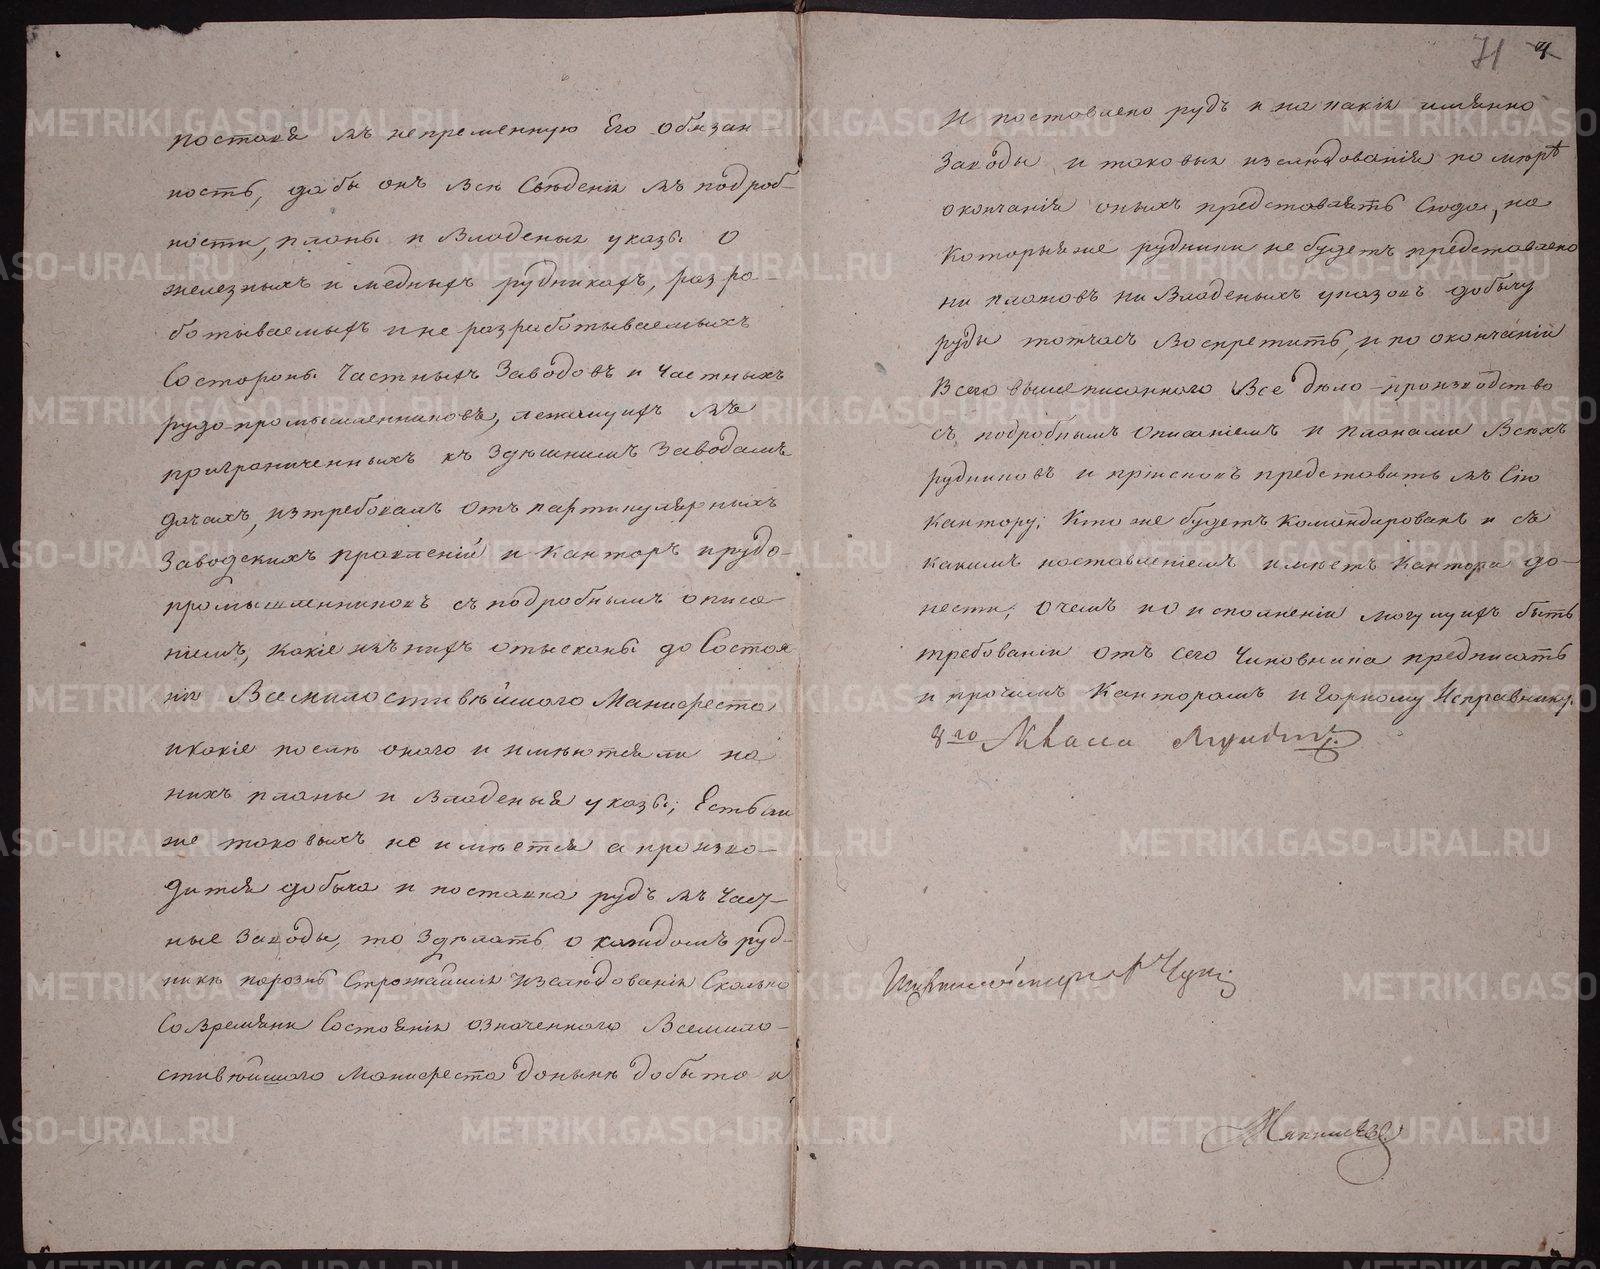 поставя въ непременную Его обязан-
ность, дабы онъ все Сведении въ подроб-
ности, планы и Владеныя указы о
железныхъ и медныхъ рудникахъ, разра-
ботываемыхъ и не разработываемыхъ
Состороны Частныхъ Заводовъ и Частныхъ
рудо-промышленниковъ, лежащихъ въ
приграниченныхъ къ Здешнимъ Заводамъ
дачахъ, изтребовалъ отъ партикулярныхъ
Заводскихъ правленiй и Канторъ и рудо-
промышленниковъ съ подробнымъ описа
нiемъ, какiе изъ нихъ отысканы до Состоя
нiя Всемилостивѣйшаго Манифеста
и какiе послѣ онаго и имѣютсяли на
нихъ планы и Владеныя указы; Естьли
же таковыхъ не имѣется а произво-
дится добыча и поставка рудъ въ Част-
ные Заводы, то Здѣлать о каждомъ руд-
никѣ порознь Строжайшiя Изслѣдованiи Сколько
Со Времяни Состоянiя означеннаго Всемило-
стивѣйшаго Манифеста донынѣ добыто и
71 4
И поставлено рудъ и на какiя имянно
Заводы, и таковыя изслѣдованiя по мѣрѣ
окончанiя оныхъ представлять Сюда, на
Которыяже рудники не будетъ представлено
ни плановъ ни Владеныхъ указовъ добычу
руды тотчасъ Воспретить, и по окончанiи
Всего вышеписанного Все дѣло производство
съ подробнымъ Описанiемъ и планами Всѣхъ
рудниковъ и прiисковъ представить въ Сiю
Кантору; Кто же будетъ Командированъ и съ
какимъ наставленiемъ имѣетъ Кантора до-
нести; О чемъ и о исполненiи могущихъ быть
требованiи отъ сего Чиновника предписать
и прочимъ Канторамъ и Горному Исправнику.
8го
METRIKI.GASO-URAL.RU